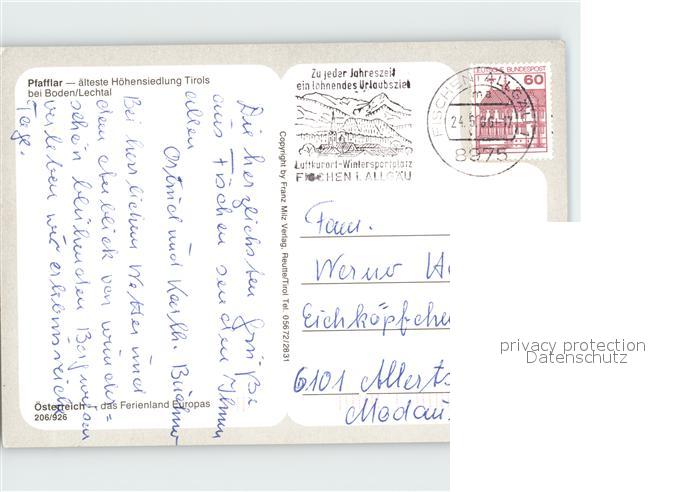 Pfafflar — älteste Höhensiedlung Tirols
bei Boden/Lechtal
Die herzlichsten Grüße
aus Fischen senden Ihnen
allen
und Karlh. Büchner
Bei herrlichem Wetter und
dem Anblick von wunder=
schön blühenden Bergwiesen
verleben wir erholsreiche
Tage.
Österreich — das Ferienland Europas
206/926
Copyright by Franz Milz Verlag, Reutte/Tirol Tel. 05672/2831
Zu jeder Jahreszeit
ein lohnendes Urlaubsziel
Luftkurort-Wintersportplatz
FISCHEN i. ALLGÄU
FISCHEN i. ALLGÄU
ma
24.5.86-17
8975
DEUTSCHE BUNDESPOST
60
Fam.
Werner
Eichköpfche
6101 Allerts
Modau
privacy protection
Datenschutz